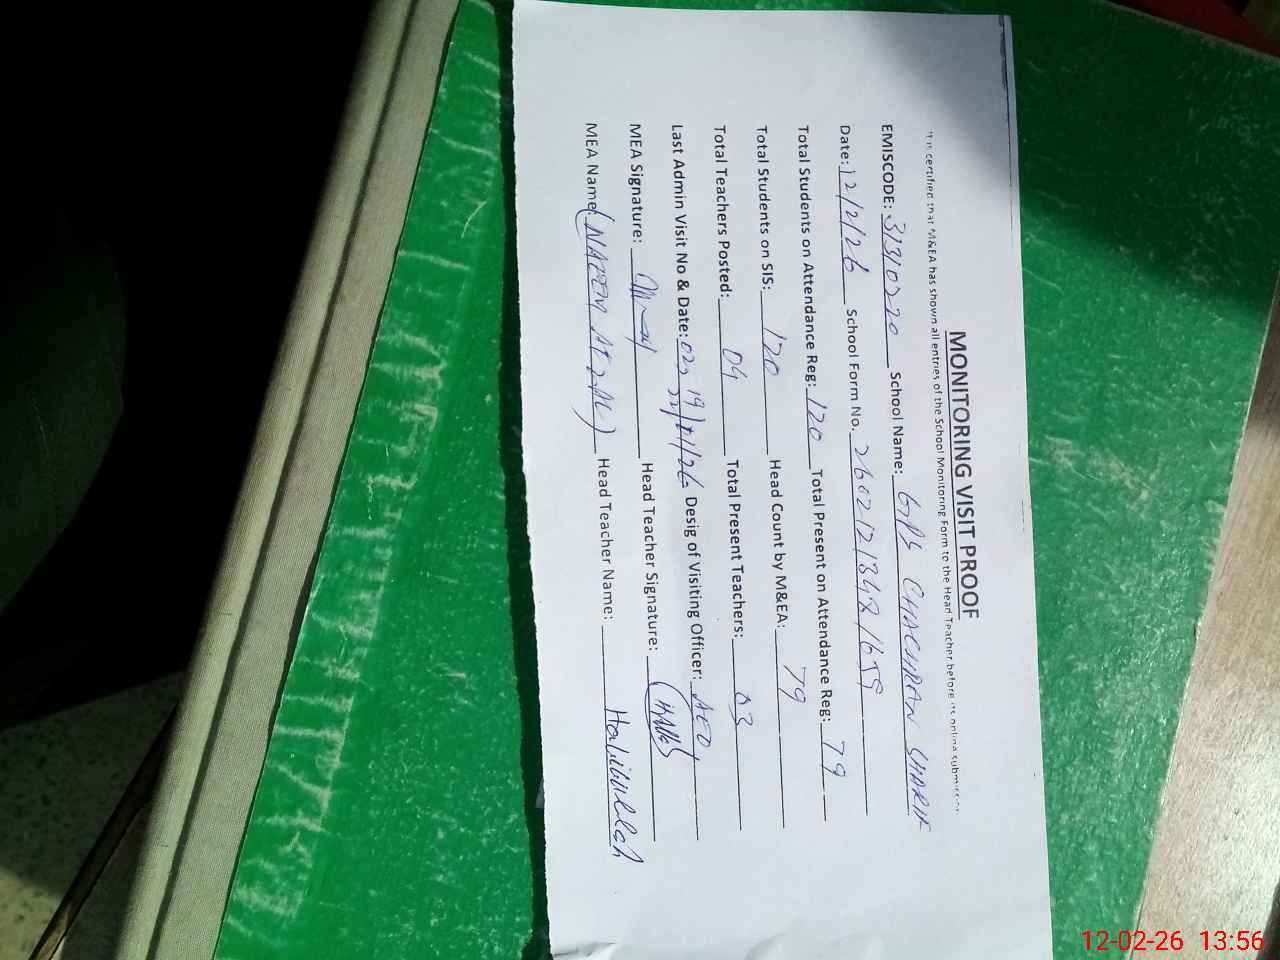 MONITORING VISIT PROOF
It is certified that M&EA has shown all entries of the School Monitoring Form to the Head Teacher before its online submission
EMISCODE: 31310220 School Name: GPS CHACHRAN SHARIF
Date: 12/2/26 School Form No. 26021213481659
Total Students on Attendance Reg: 120 Total Present on Attendance Reg: 79
Total Students on SIS: 120 Head Count by M&EA: 79
Total Teachers Posted: 04 Total Present Teachers: 03
Last Admin Visit No & Date: 02, 19/1/26 Desig of Visiting Officer: AEO
MEA Signature: Head Teacher Signature:
MEA Name: (NAEEM AFZAL) Head Teacher Name: Habibullah
12-02-26 13:56